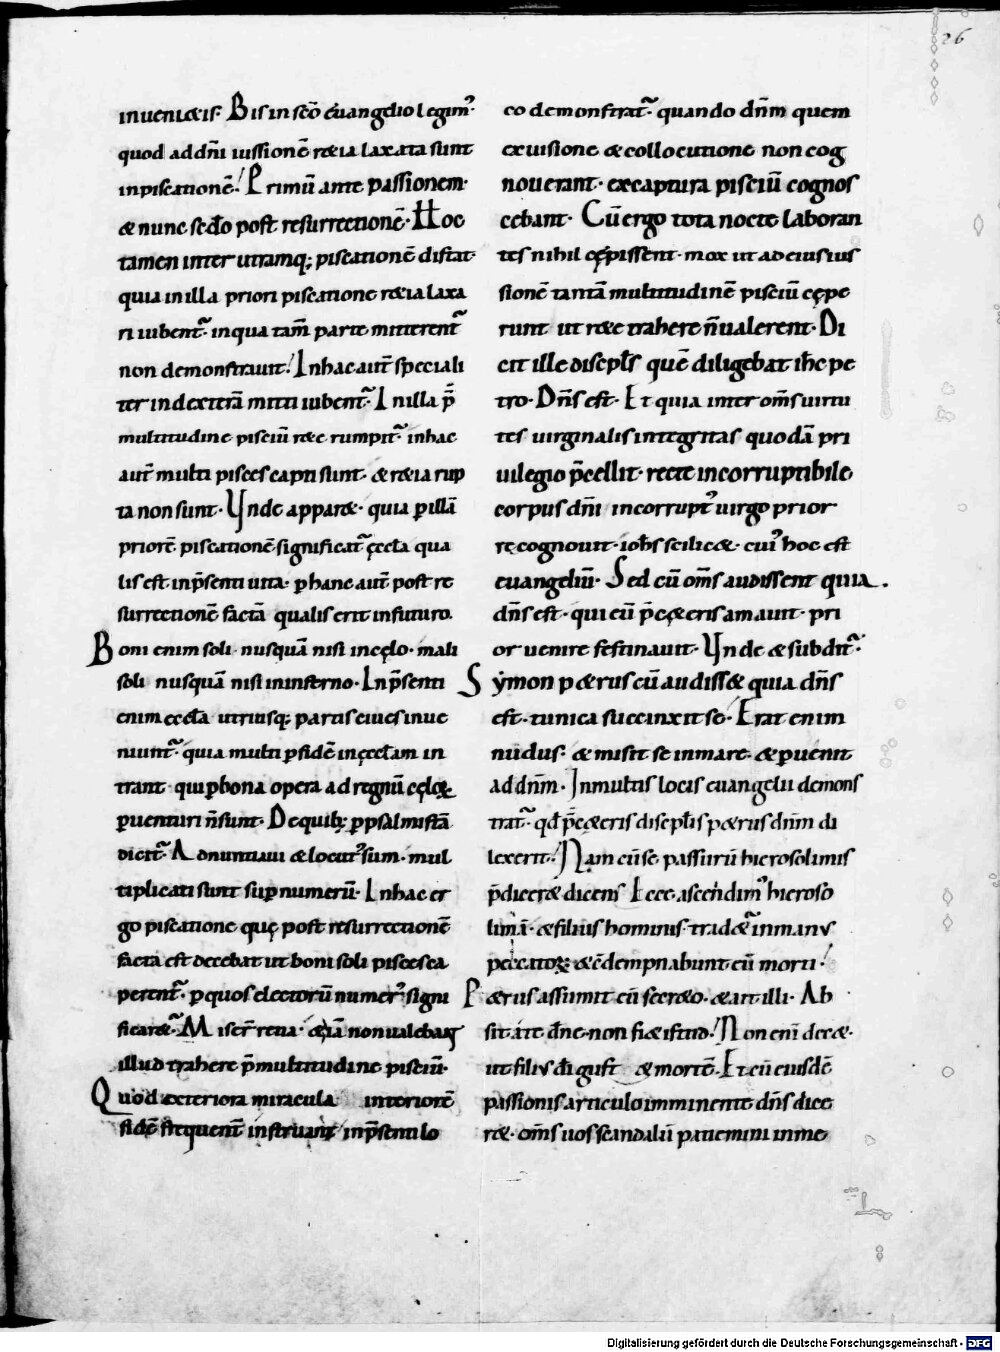 26
inueni&is· Bis in sc̄o euangelio legim᾽·
quod ad dn̄i iussionē r&ia laxata sunt
in piscationē! Primū ante passionem·
& nunc sed̄o post resurrectionē· Hoc
tamen inter utramq; piscationē distat·
quia in illa priori piscatione r&ia laxa
ri iubent᷑· in qua tam̄ parte mitterent᷑
non demonstrauit! In hac aut̄ speciali
ter in dexterā mitti iubent᷑· In illa p̄
multitudine pisciū r&e rumpit᷑· in hac
aut̄ multi pisces capti sunt· & r&ia rup
ta non sunt· Vnde appar&· quia p illā
priorē piscationē significat᷑ ęccl̄a qua
lis est in p̄senti uita· p hanc aut̄ post re
surrectionē factā qualis erit in futuro·
Boni enim soli· nusquā nisi in cęlo· mali
soli nusquā nisi in inferno· In p̄senti
enim eccl̄a utriusq; partis ciues inue
niunt᷑· quia multi p fidē in ęccl̄am in
trant· qui p bona opera ad regnū cęlo&
puenturi n̄ sunt· De quib; p psalmistā
dicit᷑· Adnuntiaui & locut᾽ sum· mul
tiplicati sunt sup numerū· In hac er
go piscatione quę post resurrectionē
facta est decebat ut boni soli pisces ca
perent᷑· p quos electorū numer᾽ signi
ficar&᷑·
illud trahere p̄ multitudine pisciū·
Quod exteriora miracula interiorē
fidē frequent̄ instruant in p̄senti lo
co demonstrat᷑· quando dn̄m quem
ex uisione & collocutione non cog
nouerant· ex captura pisciū cognos
cebant· Cū ergo tota nocte laboran
tes nihil cępissent· mox ut ad eius ius
sionē tantā multitudinē pisciū cępe
runt ut r&e trahere n̄ ualerent· Di
cit ille discipl̄s quē diligebat ih̄c pe
tro· Dn̄s est· Et quia inter om̄s uirtu
tes uirginalis integritas quodā pri
uilegio p̄cellit· recte incorruptibile
corpus dn̄i incorrupt᾽ uirgo prior
recognouit· ioh̄s scilic&· cui᾽ hoc est
euangeliū· Sed cū om̄s audissent quia
dn̄s est· qui eū p̄ c&eris amauit· pri
or uenire festinauit· Vnde & subdit᷑·
Symon p&rus cū audiss& quia dn̄s
est· tunica succinxit se· Erat enim
nudus· & misit se in mare· & puenit
ad dn̄m· In multis locis euangelii demons
trat᷑· qd̄ p̄ c&eris discipl̄is p&rus dn̄m di
lexerit! Nam cū se passurū hierosolimis
p̄dicer& dicens Ecce ascendim᾽ hieroso
limā· & filius hominis trad&᷑ in manus
peccatorꝝ & c̄dempnabunt eū morti!
P&rus assumit eū secr&o· & ait illi· Ab
sit a te dn̄e· non fi& istud! Non enī dec&·
ut filius dī gust& mortē· Et cū eiusdē
passionis articulo imminente dn̄s dice
r&· om̄s uos scandalū patiemini in me
Digitalisierung gefördert durch die Deutsche Forschungsgemeinschaft - DFG